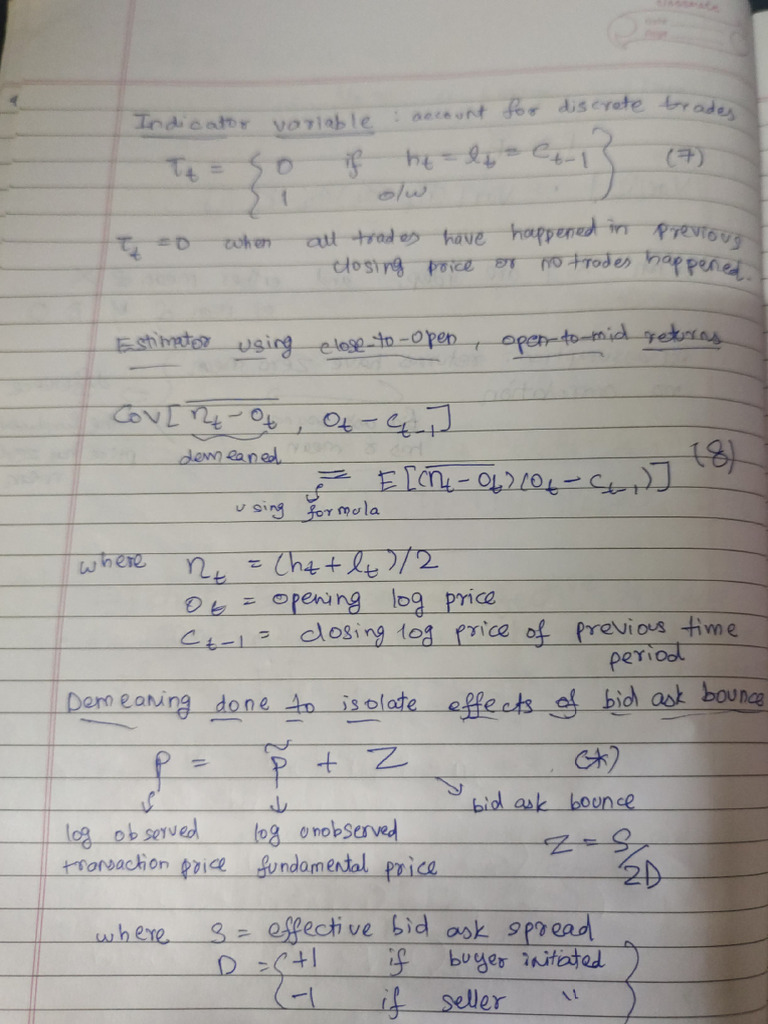 Indicator variable : account for discrete trades
τt = { 0 if ht = lt = Ct-1 } (7)
1 o/w
τt = 0 when all trades have happened in previous
closing price or no trades happened.
Estimator using close-to-open, open-to-mid returns
Cov[ n̅t - o̅t , Ot - Ct-1 ]
demeaned
= E[(n̅t - o̅t)(Ot - Ct-1)] (8)
using formula
where nt = (ht + lt)/2
Ot = opening log price
Ct-1 = closing log price of previous time
period
Demeaning done to isolate effects of bid ask bounce
p = p̃ + Z (*)
bid ask bounce
log observed log unobserved Z = S/2D
transaction price fundamental price
where S = effective bid ask spread
D = { +1 if buyer initiated }
-1 if seller "